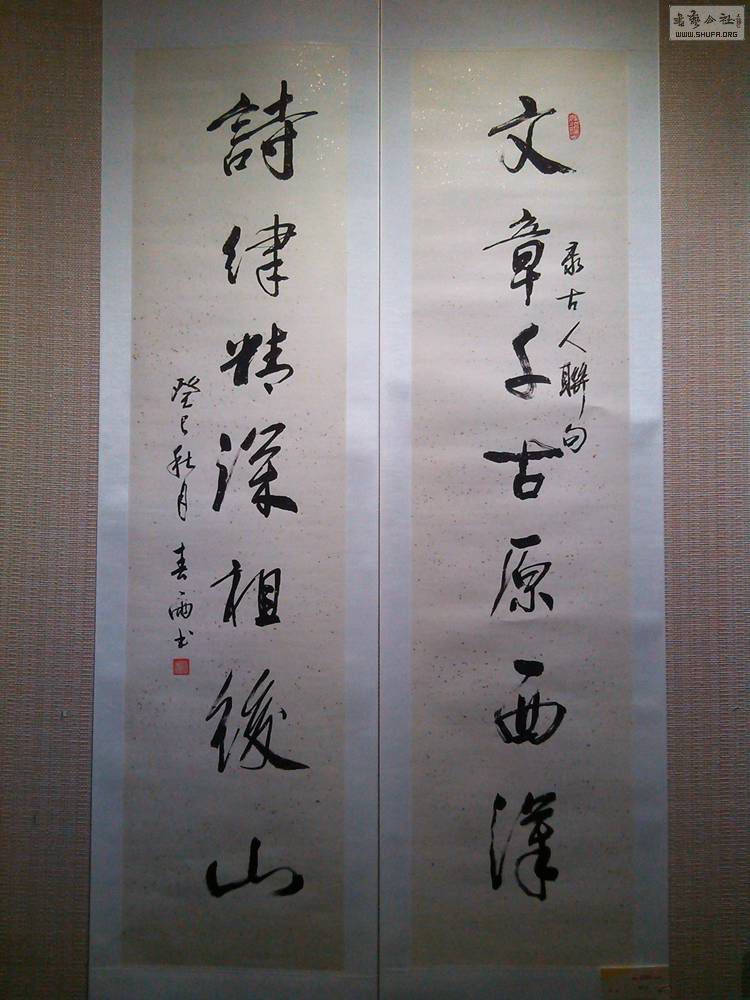 文章千古原西漢
录古人聯句
詩律精深祖後山
癸巳秋月 春雨书
书艺公社
WWW.SHUFA.ORG